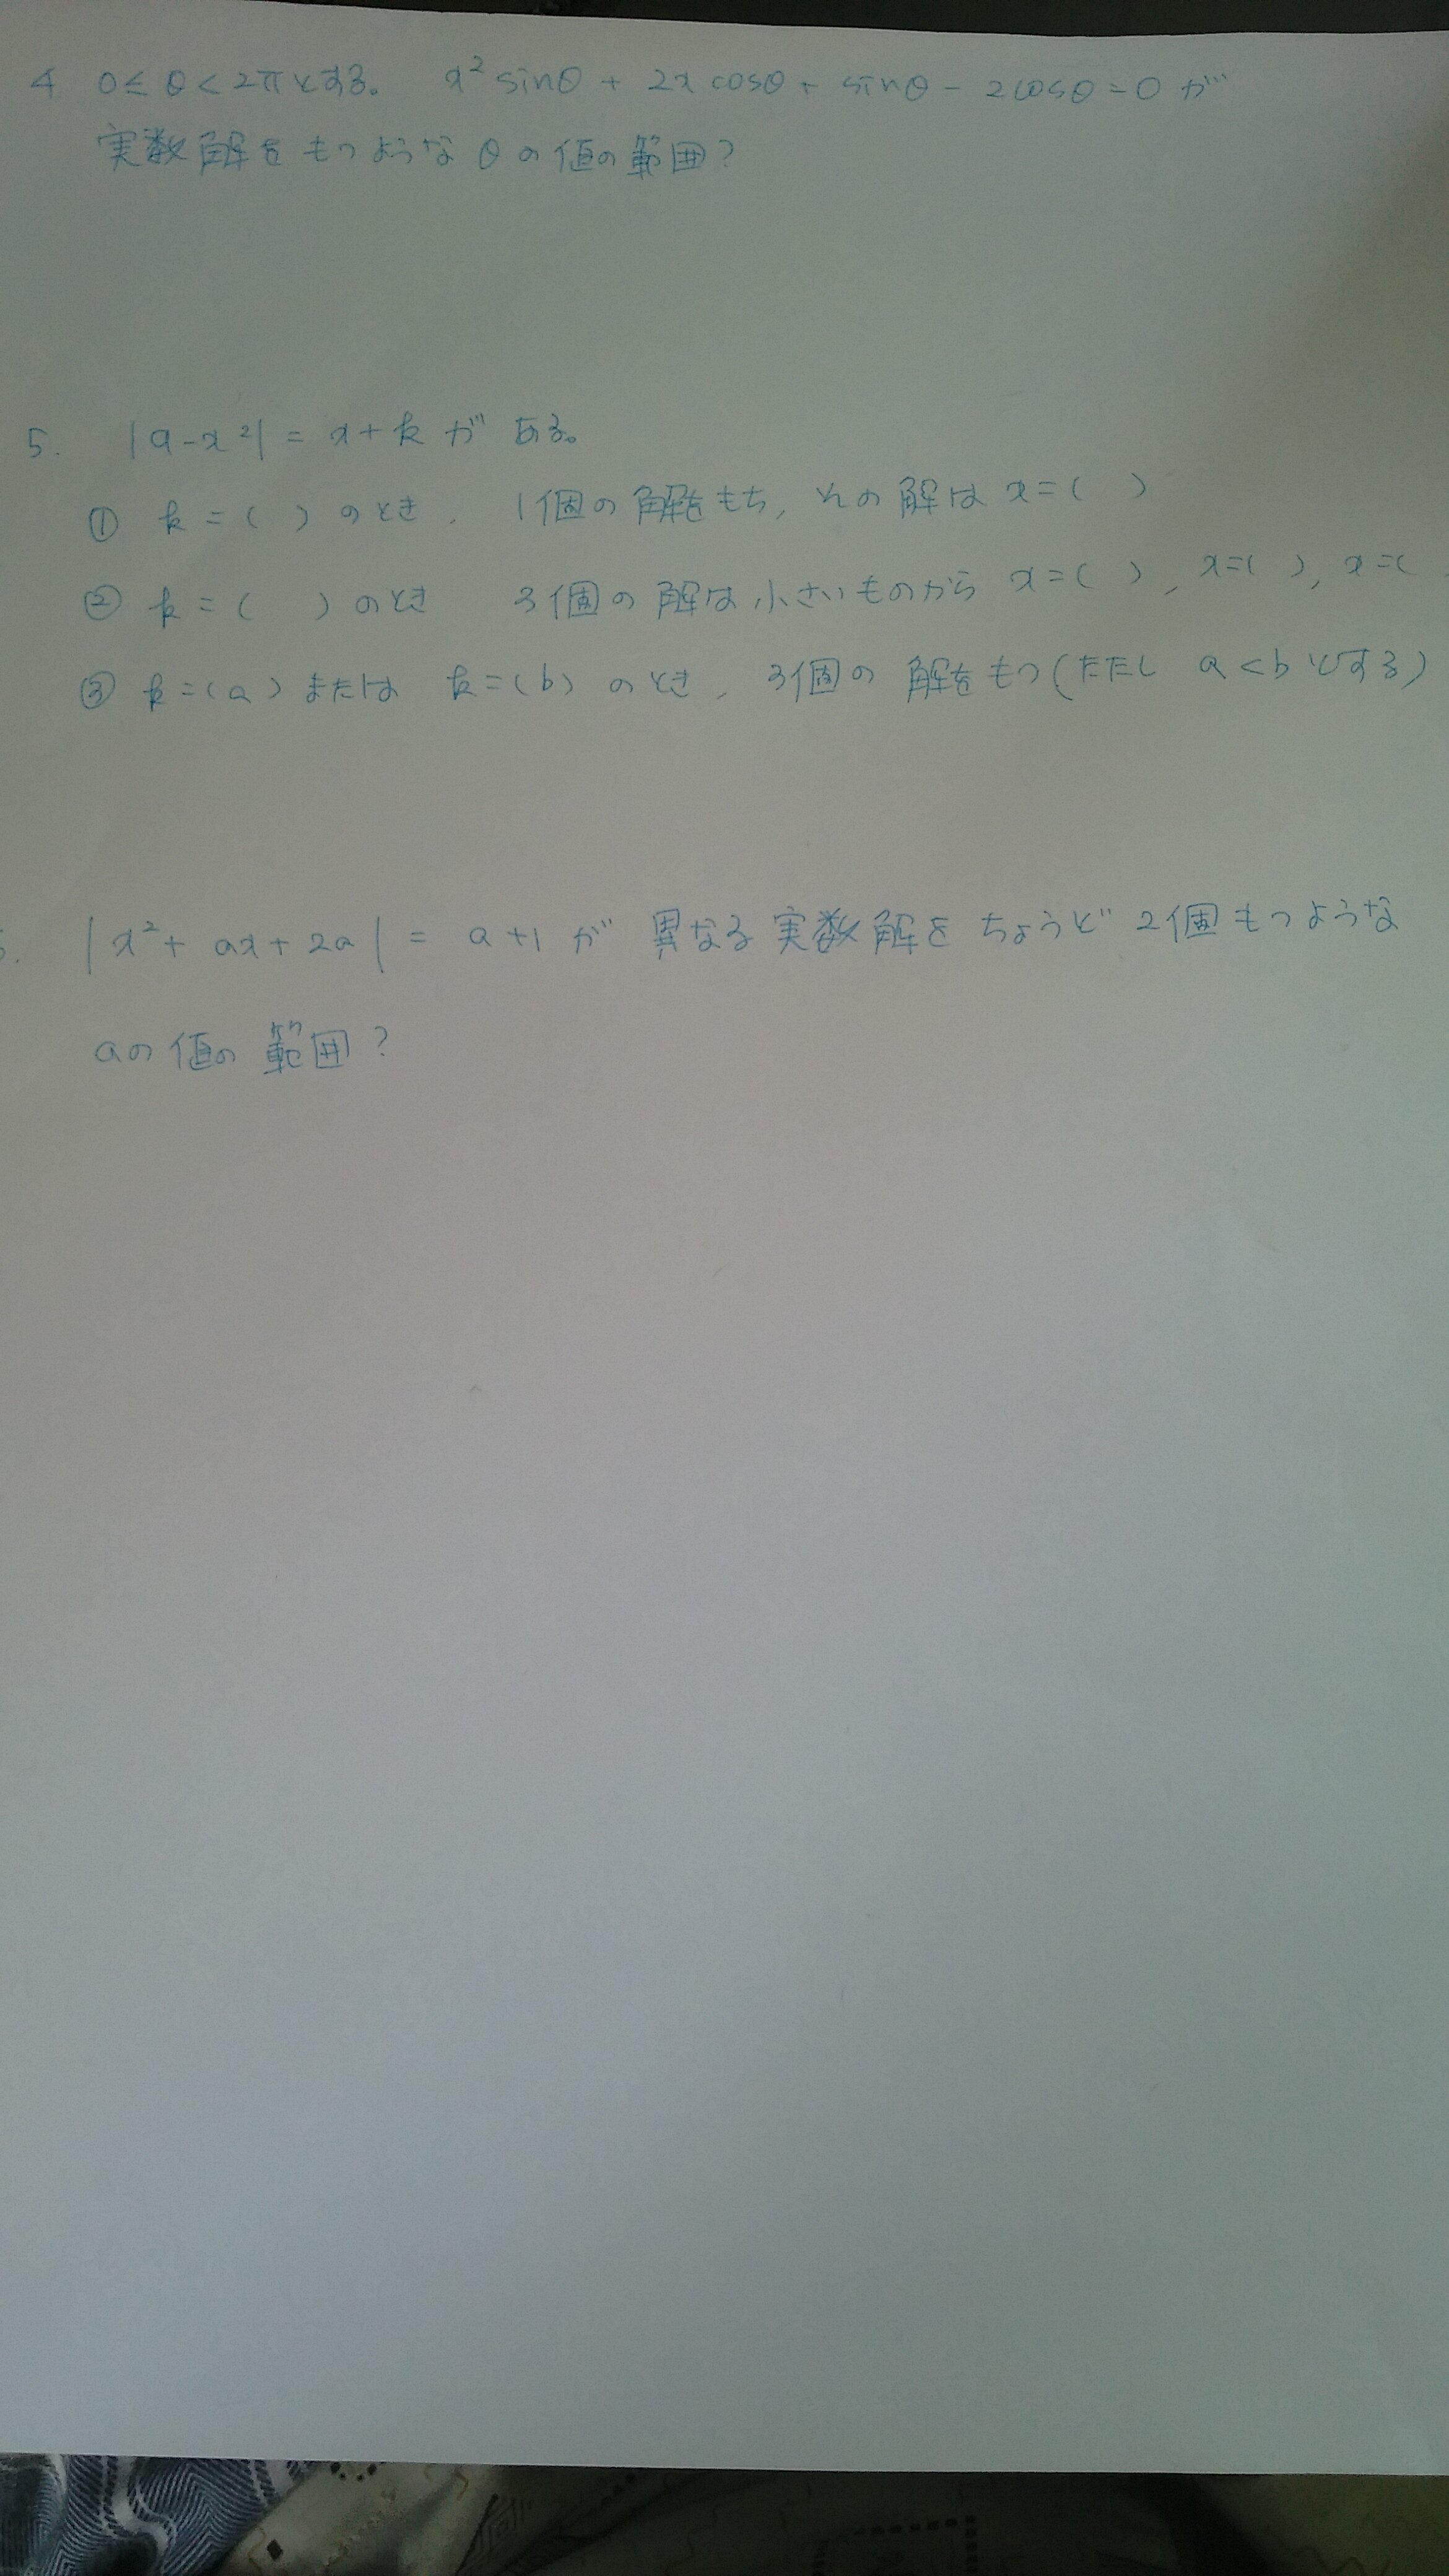 4 0≤θ<2πとする。 x² sinθ + 2x cosθ + sinθ - 2cosθ = 0 が
実数解をもつような θ の値の範囲?
5. |a-x²| = x+k が ある。
① k = ( ) のとき, 1個の解をもち, その解は x = ( )
② k = ( ) のとき 3個の解は小さいものから x = ( ), x = ( ), x = (
③ k = (a) または k = (b) のとき, 3個の解をもつ (ただし a<b とする)
|x² + ax + 2a| = a+1 が 異なる実数解をちょうど 2個もつような
aの値の範囲?